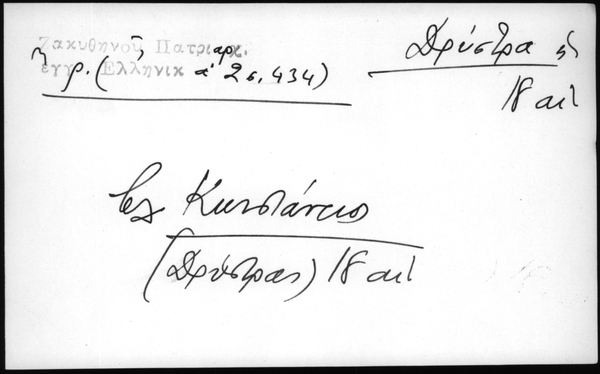 Ζακυθηνοῦ Πατριαρχ.
ἔγγ. Ἑλληνικ
ρ. ( α' 2 σ. 434)
Δρύστρα
18 αἰ
Κωνστάντιος
(Δρύστρας) 18 αἰ